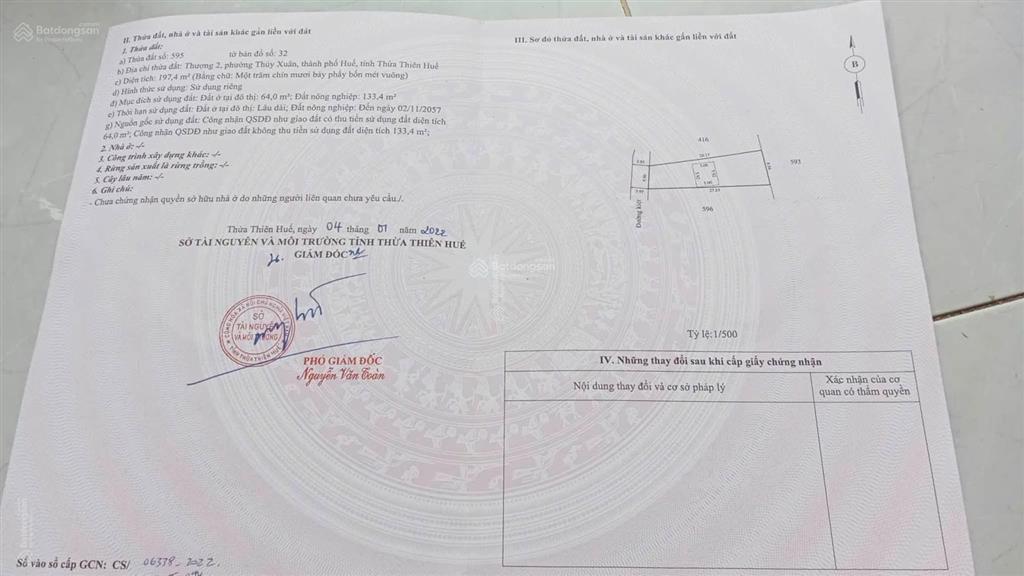 Batdongsan
by PropertyGuru
II. Thửa đất, nhà ở và tài sản khác gắn liền với đất
1. Thửa đất:
a) Thửa đất số: 595 tờ bản đồ số: 32
b) Địa chỉ thửa đất: Thượng 2, phường Thủy Xuân, thành phố Huế, tỉnh Thừa Thiên Huế
c) Diện tích: 197,4 m² (Bằng chữ: Một trăm chín mươi bảy phẩy bốn mét vuông)
d) Hình thức sử dụng: Sử dụng riêng
đ) Mục đích sử dụng đất: Đất ở tại đô thị: 64,0 m²; Đất nông nghiệp: 133,4 m²
e) Thời hạn sử dụng đất: Đất ở tại đô thị: Lâu dài; Đất nông nghiệp: Đến ngày 02/11/2057
g) Nguồn gốc sử dụng đất: Công nhận QSDĐ như giao đất có thu tiền sử dụng đất diện tích
64,0 m²; Công nhận QSDĐ như giao đất không thu tiền sử dụng đất diện tích 133,4 m²;
2. Nhà ở: -/-
3. Công trình xây dựng khác: -/-
4. Rừng sản xuất là rừng trồng: -/-
5. Cây lâu năm: -/-
6. Ghi chú:
- Chưa chứng nhận quyền sở hữu nhà ở do những người liên quan chưa yêu cầu./.
Thừa Thiên Huế, ngày 04 tháng 01 năm 2022
SỞ TÀI NGUYÊN VÀ MÔI TRƯỜNG TỈNH THỪA THIÊN HUẾ
GIÁM ĐỐC
SỞ
TÀI NGUYÊN
VÀ MÔI TRƯỜNG
PHÓ GIÁM ĐỐC
Nguyễn Văn Toàn
Số vào sổ cấp GCN: CS/ 06378-2022.
III. Sơ đồ thửa đất, nhà ở và tài sản khác gắn liền với đất
B
416
593
596
Đường kiệt
Batdongsan
by PropertyGuru
Tỷ lệ: 1/500
IV. Những thay đổi sau khi cấp giấy chứng nhận
Nội dung thay đổi và cơ sở pháp lý
Xác nhận của cơ
quan có thẩm quyền